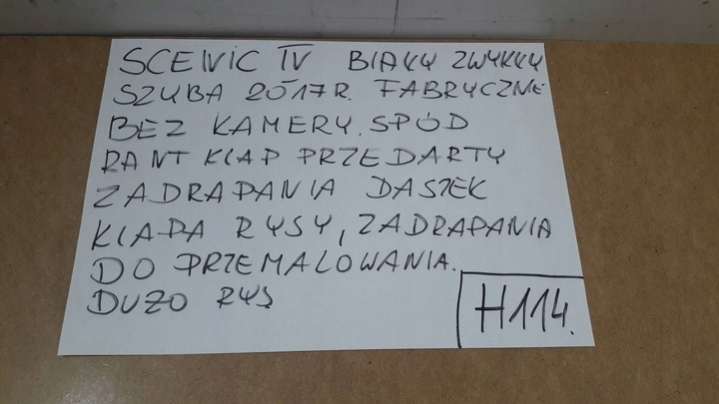 SCENIC IV BIAŁY ZWYKŁY
SZYBA 2017R. FABRYCZNE
BEZ KAMERY. SPÓD
RANT KLAP PRZEDARTY
ZADRAPANIA DASZEK
KLAPA RYSY, ZADRAPANIA
DO PRZEMALOWANIA.
DUZO RYS
H114.